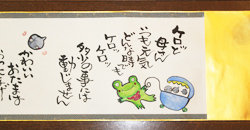 ケロど
母さん
いつも元気
どんな時でも
ケロッケロッ
多少の事には
動じません
かわいい
おたまを